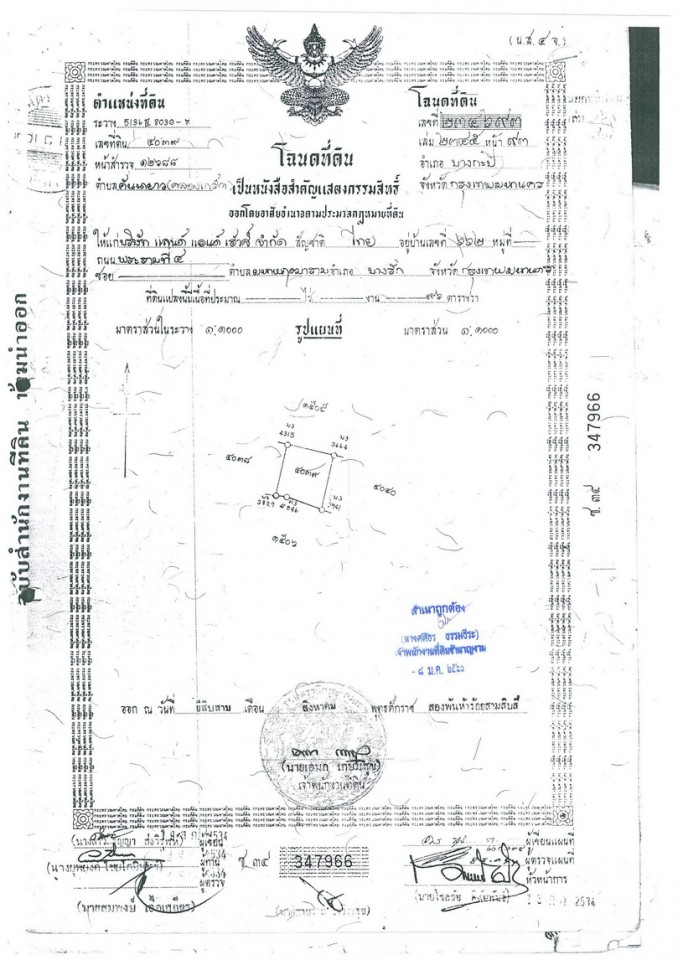 (น.ส.๔ จ.)
ตำแหน่งที่ดิน
ระวาง 5136 II 8030-๖
เลขที่ดิน ๔๐๓๙
หน้าสำรวจ ๑๒๖๘๘
ตำบล คันนายาว (คลองกุ่ม)
โฉนดที่ดิน
เลขที่ ๒๓๔๖๙๓
เล่ม ๒๓๔๕ หน้า ๙๓
อำเภอ บางกะปิ
จังหวัด กรุงเทพมหานคร
โฉนดที่ดิน
เป็นหนังสือสำคัญแสดงกรรมสิทธิ์
ออกโดยอาศัยอำนาจตามประมวลกฎหมายที่ดิน
ให้แก่ บริษัท แลนด์ แอนด์ เฮ้าส์ จำกัด สัญชาติ ไทย อยู่บ้านเลขที่ ๖๖๒ หมู่ที่
ถนน พระรามที่ ๔
ซอย ตำบล มหาพฤฒาราม อำเภอ บางรัก จังหวัด กรุงเทพมหานคร
ที่ดินแปลงนี้มีเนื้อที่ประมาณ ไร่ งาน ๗๖ ตารางวา
มาตราส่วนในระวาง ๑:๑๐๐๐ รูปแผนที่ มาตราส่วน ๑:๑๐๐๐
๑๕๐๕
4315
3664
๔๐๓๘
๔๐๓๙
๔๐๔๐
3941
๑๕๐๖
ฉบับสำนักงานที่ดิน ห้ามนำออก
ช.๓๔ 347966
สำเนาถูกต้อง
เจ้าพนักงานที่ดินชำนาญงาน
- ๘ ม.ค. ๒๕๖๑
ออก ณ วันที่ ยี่สิบสาม เดือน สิงหาคม พุทธศักราช สองพันห้าร้อยสามสิบสี่
เจ้าพนักงานที่ดิน
ผู้เขียน
ผู้ทาน
ผู้ตรวจ
ช.๓๔ 347966
ผู้เขียนแผนที่
ผู้ตรวจแผนที่
หัวหน้าการ
2534